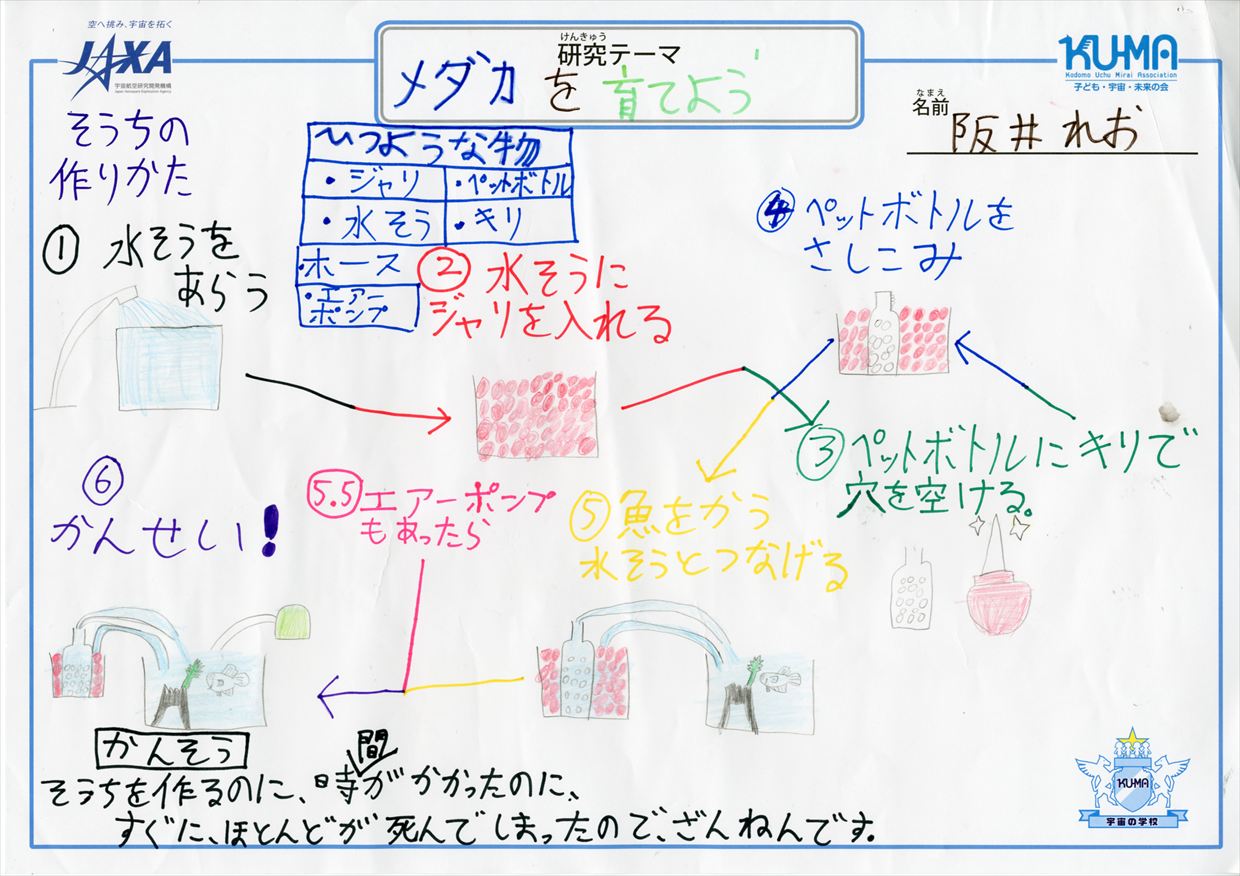 空へ挑み、宇宙を拓く
JAXA
宇宙航空研究開発機構
Japan Aerospace Exploration Agency
けんきゅう
研究テーマ
メダカを育てよう
KU-MA
Kodomo Uchu Mirai Association
子ども・宇宙・未来の会
なまえ
名前
阪井れお
そうちの
作りかた
ひつような物
・ジャリ
・ペットボトル
・水そう
・キリ
・ホース
・エアー
ポンプ
① 水そうを
あらう
② 水そうに
ジャリを入れる
③ペットボトルにキリで
穴を空ける。
④ ペットボトルを
さしこみ
⑤ 魚をかう
水そうとつなげる
5.5 エアーポンプ
もあったら
⑥
かんせい!
かんそう
そうちを作るのに、時間がかかったのに、
すぐに、ほとんどが死んでしまったので、ざんねんです。
KUMA
宇宙の学校